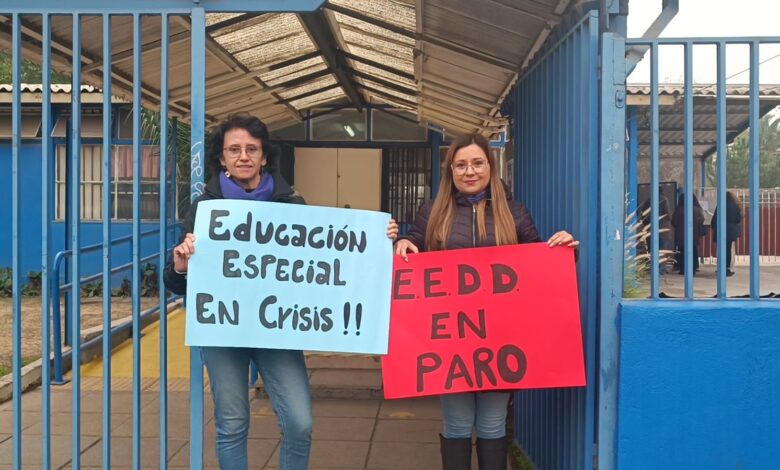 Educación
Especial
En Crisis!!
E.E.D.D.
EN
PARO